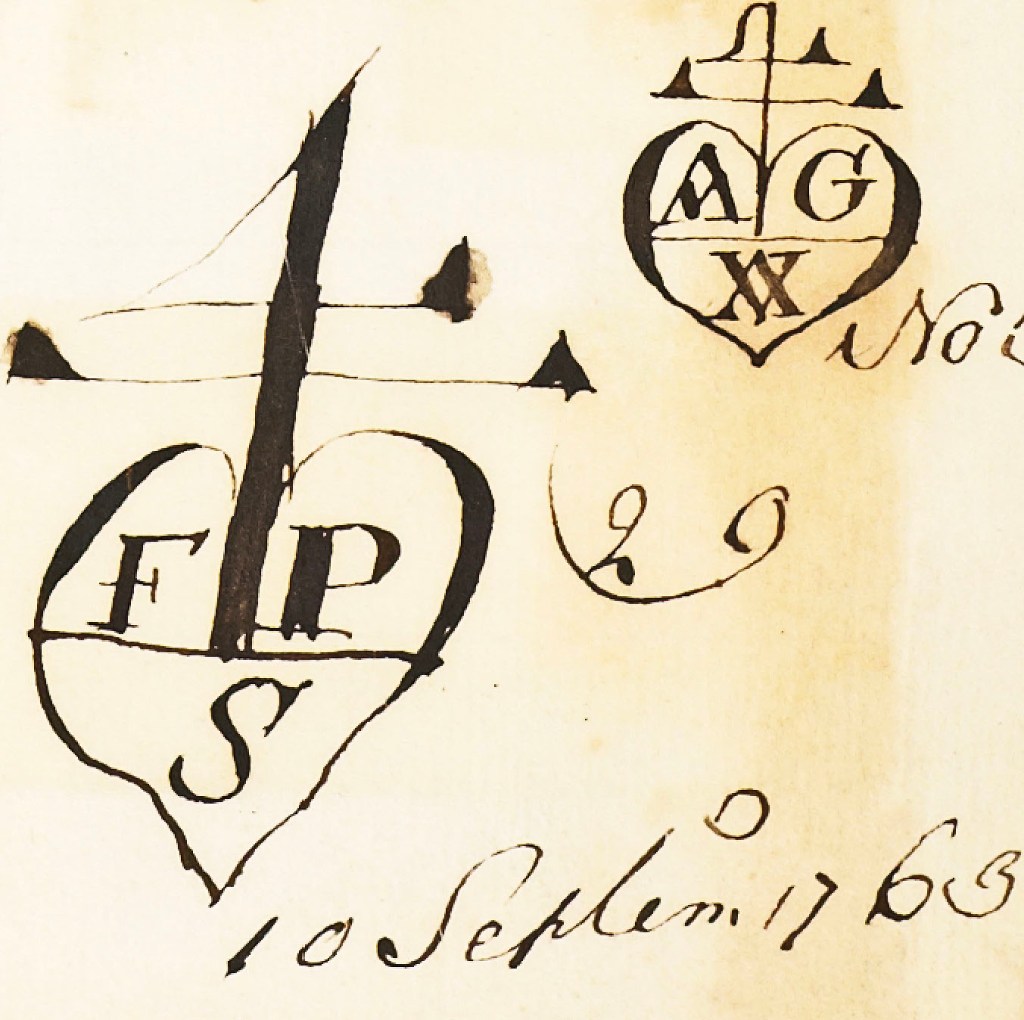 A G
W
No
F P
S
29
10 Septem. 1763